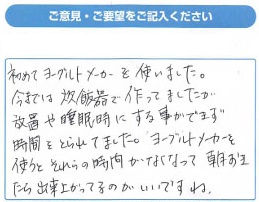 ご意見・ご要望をご記入ください
初めてヨーグルトメーカーを使いました。
今までは炊飯器で作ってましたが
放置や睡眠時にする事ができず
時間をとられてました。ヨーグルトメーカーを
使うとそれらの時間がなくなって朝おき
たら出来上がってるのがいいですね。